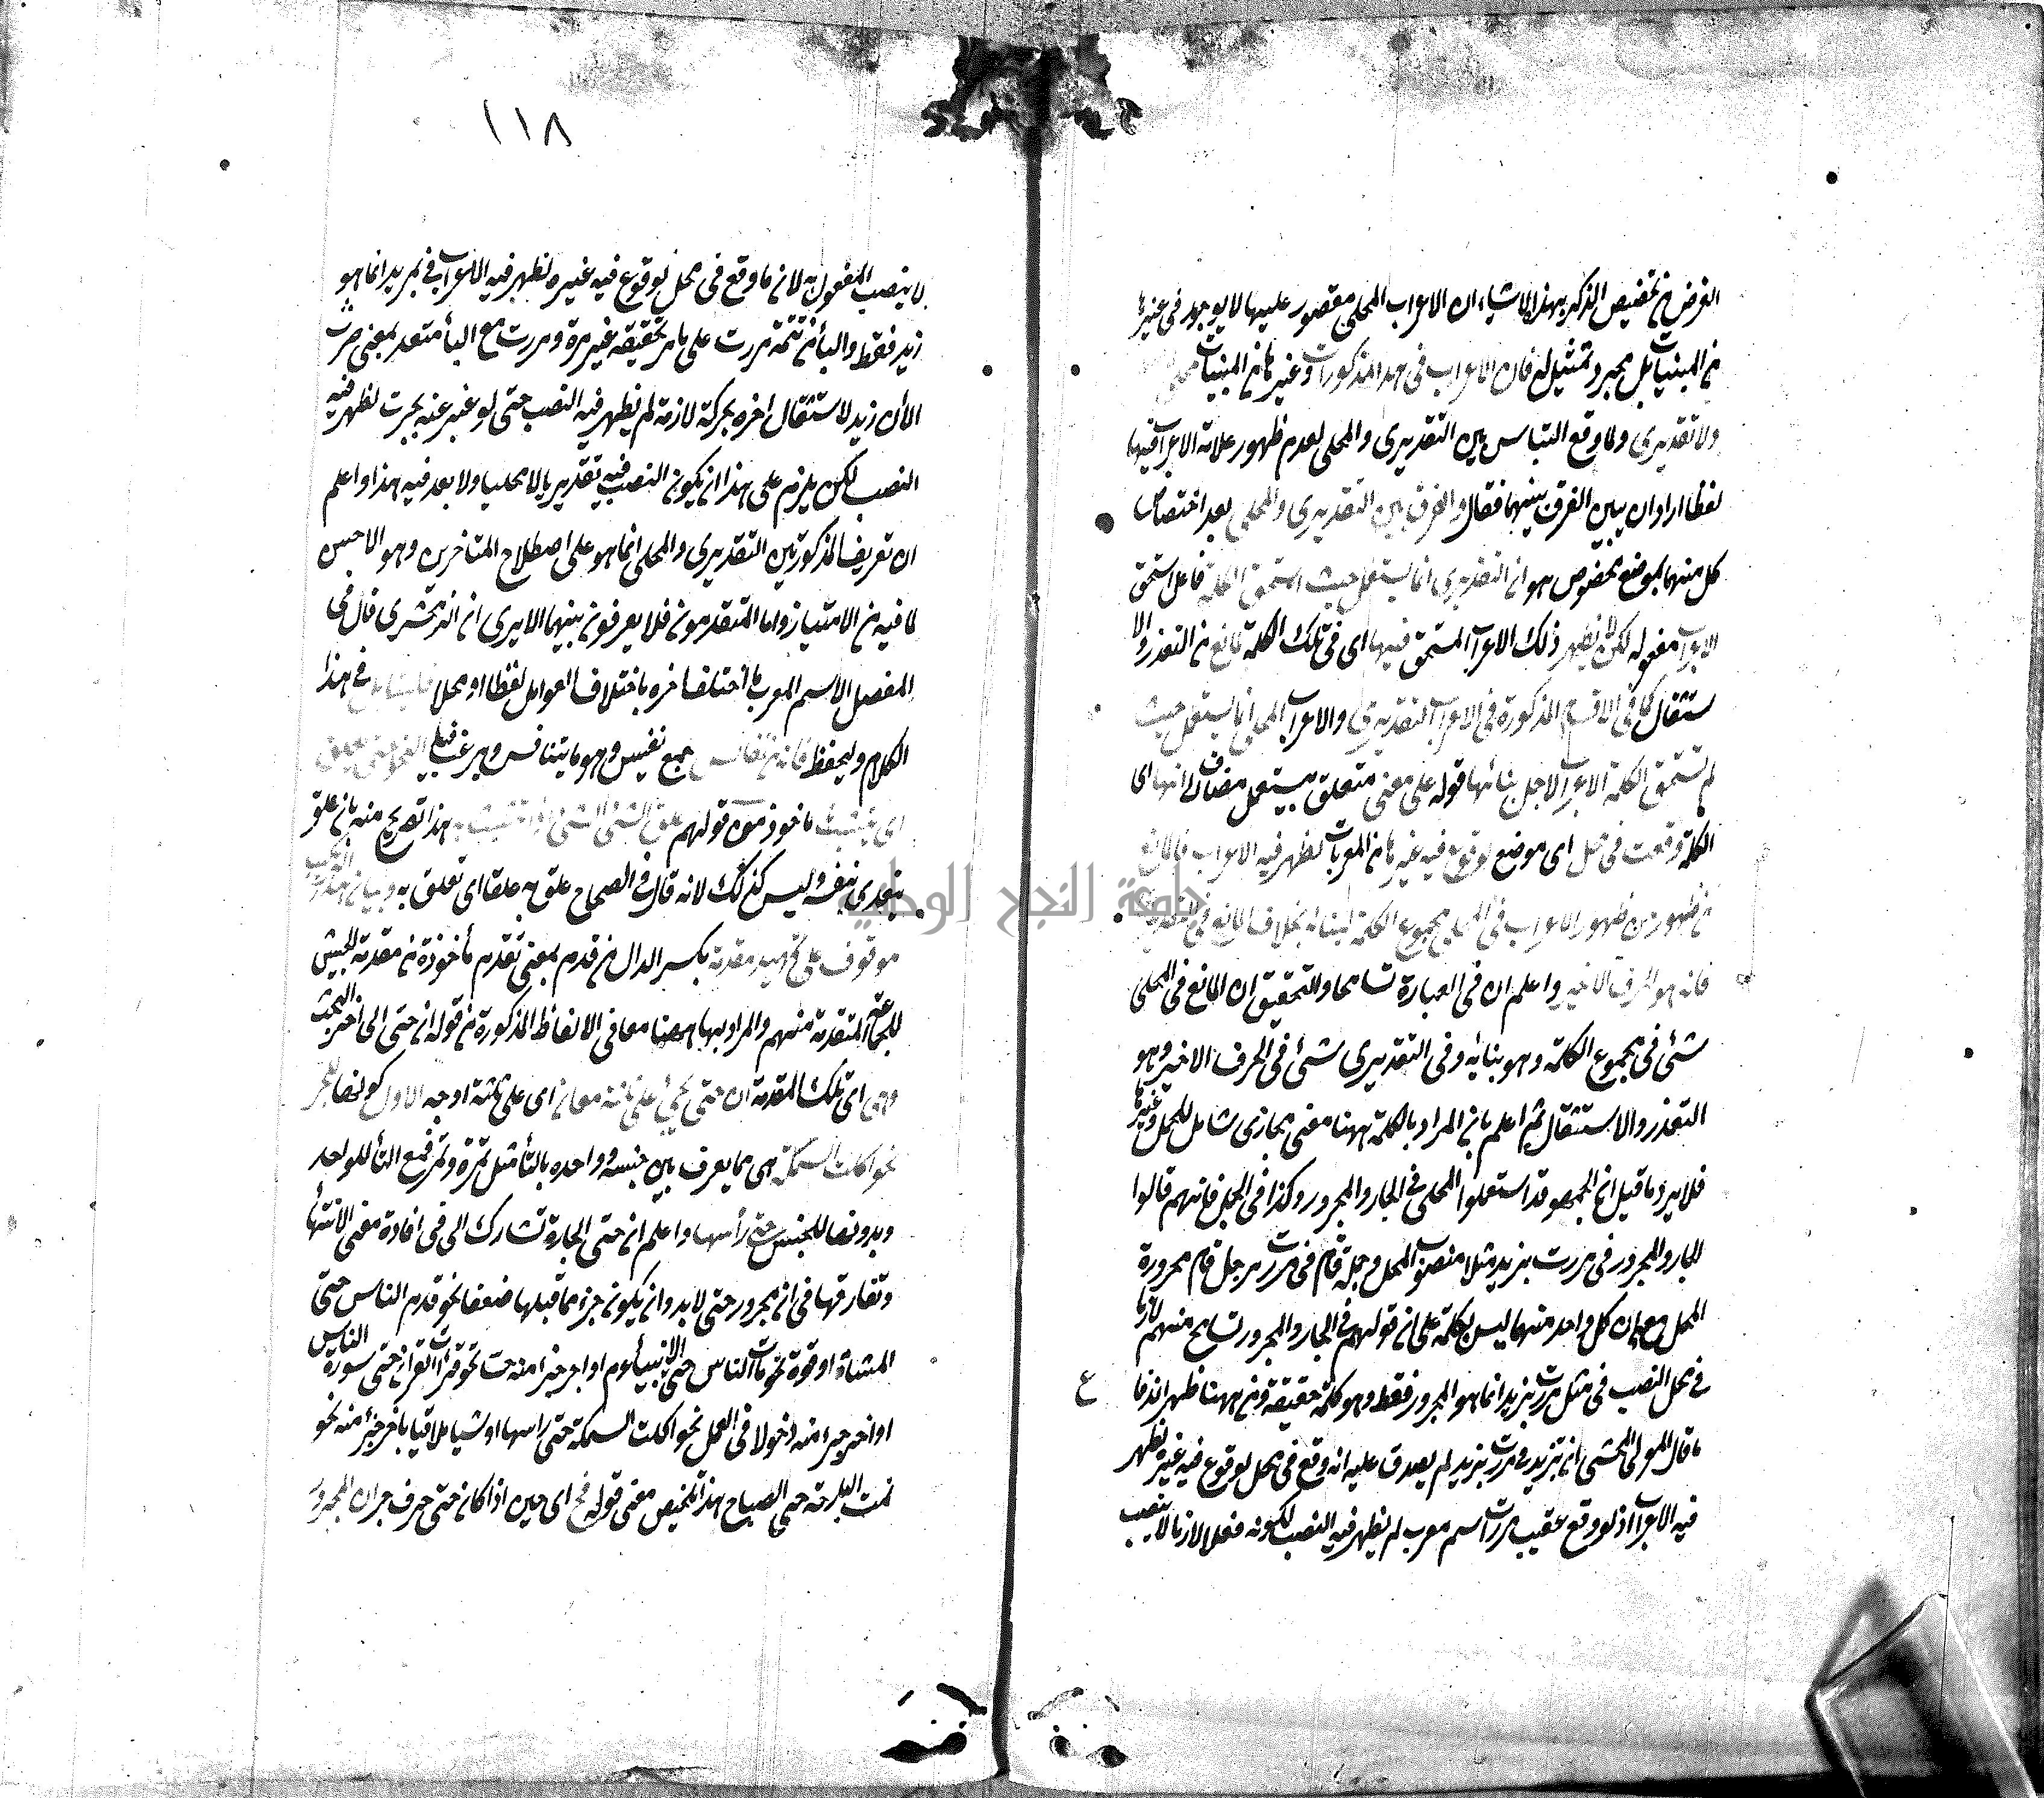 الغرض من تخصيص الذكر بهذه الاشياء ان الاعراب المحلي مقصور عليها لا يوجد في غيرها
من المبنيات بل مجرد تمثيل له فان الاعراب في هذه المذكورات وغيرها من المبنيات محلي
ولا تقديري ولما وقع التباس بين التقديري والمحلي لعدم ظهور علامة الاعراب فيها
لفظا اراد ان يبين الفرق بينهما فقال والفرق بين التقديري والمحلي بعد اختصاص
كل منهما بموضع مخصوص هو ان التقديري انما يستعمل حيث استحق الكلمة فاعل استحق
الاعراب مفعوله لكن لا يظهر ذلك الاعراب المستحق فيها اى في تلك الكلمة لمانع من التعذر والا
ستثقال كما في الاقسام المذكورة في الاعراب التقديري والاعراب المحلي انما يستعمل حيث
لم تستحق الكلمة الاعراب لاجل بنائها قوله على معنى متعلق بيستعمل مضاف الى انها اى
الكلمة وقعت في محل اى موضع لو وقع فيه غيرها من المعربات لظهر فيه الاعراب فالمانع
من ظهور الاعراب في المحلي مجموع الكلمة لبنائه بخلاف المانع في التقديري
فانه هو الحرف الاخير واعلم ان في العبارة تسامحا والتحقيق ان المانع في المحلي
شئ في مجموع الكلمة وهو بنائه وفي التقديري شئ في الحرف الاخير وهو
التعذر والاستثقال ثم اعلم بان المراد بالكلمة ههنا معنى مجازى شامل للجمل وغيرها
فلا يرد ما قيل ان الجمهور قد استعملوا المحلي في الجار والمجرور وكذا في الجمل فانهم قالوا
الجار والمجرور في مررت بزيد مثلا منصوب المحل وجملة قام في مررت برجل قام مجرورة
المحل مع ان كل واحد منهما ليس بكلمة على ان قولهم في الجار والمجرور تسامح منهم لان ما
في محل النصب في مثل مررت بزيد انما هو المجرور فقط وهو كلمة حقيقة ومن ههنا ظهر اندفا
ع
ما قال المولى المحشى ان بزيد في مررت بزيد لم يصدق عليه انه وقع في محل لو وقع فيه غيره لظهر
فيه الاعراب اذ لو وقع عقيب مررت اسم معرب لم يظهر فيه النصب لكونه فعلا لازما لا ينصب
١١٨
لا ينصب المفعول به لان ما وقع في محل لو وقع فيه غيره لظهر فيه الاعراب في بزيد انما هو
زيد فقط والباء من تتمة مررت على ما مر تحقيقه غير مرة ومررت مع الباء متعد بمعنى جزت
الا ان زيد لاستثقال اخره بحركة لازمة لم يظهر فيه النصب حتى لو عبر عنه بجزت لظهر فيه
النصب لكن يلزم على هذا ان يكون النصب فيه تقديريا لا محليا ولا بعد فيه هذا واعلم
ان تعريف المذكورتين التقديري والمحلي انما هو على اصطلاح المتاخرين وهو الاحسن
لما فيه من الامتياز واما المتقدمون فلا يعرفون بينهما الا يرى ان الزمخشرى قال في
المفصل الاسم المعرب ما اختلف اخره باختلاف العوامل لفظا او محلا فليتامل في هذا
الكلام وليحفظ فانه من نفائس جمع نفيس وهو ما يتنافس ويرغب فيه
اى يتشبث ماخوذ من قولهم علق الشئ الشئ اذا تشبث به هذا تصريح منه بان علق
يتعدى بنفسه وليس كذلك لانه قال في الصحاح علق به علقا اى تعلق به وبيان هذا التركيب
موقوف على تمهيد مقدمة بكسر الدال من قدم بمعنى تقدم مأخوذة من مقدمة الجيش
للجماعة المتقدمة منهم والمراد بها ههنا معاني الالفاظ المذكورة من قوله ان حتى الى اخر البحث
وهي اى تلك المقدمة ان حتى تجئ على ثلثة معان اى على ثلثة اوجه الاول كونها للجر
نحو اكلت السمكة هي مما يعرف بين جنسه وواحده بالتاء مثل تمرة وتمر فمع التاء للواحد
وبدونها للجنس حتى رأسها واعلم ان حتى الجارة تشارك الى في افادة معنى الانتهاء
وتفارقها في ان مجرور حتى لا بد وان يكون جزء مما قبلها ضعفا نحو قدم الناس حتى
المشاة او قوة نحو مات الناس حتى الانبياء عم او اخر جزء منه نحو قرأت القران حتى سورة الناس
او اخر جزء منه دخولا في العمل نحو اكلت السمكة حتى راسها او شيا ملاقيا باخر جزء منه نحو
نمت البارحة حتى الصباح هذا تلخيص معنى قوله فح اى حين اذا كان حتى حرف جر ان المجرور
جامعة النجاح الوطنية